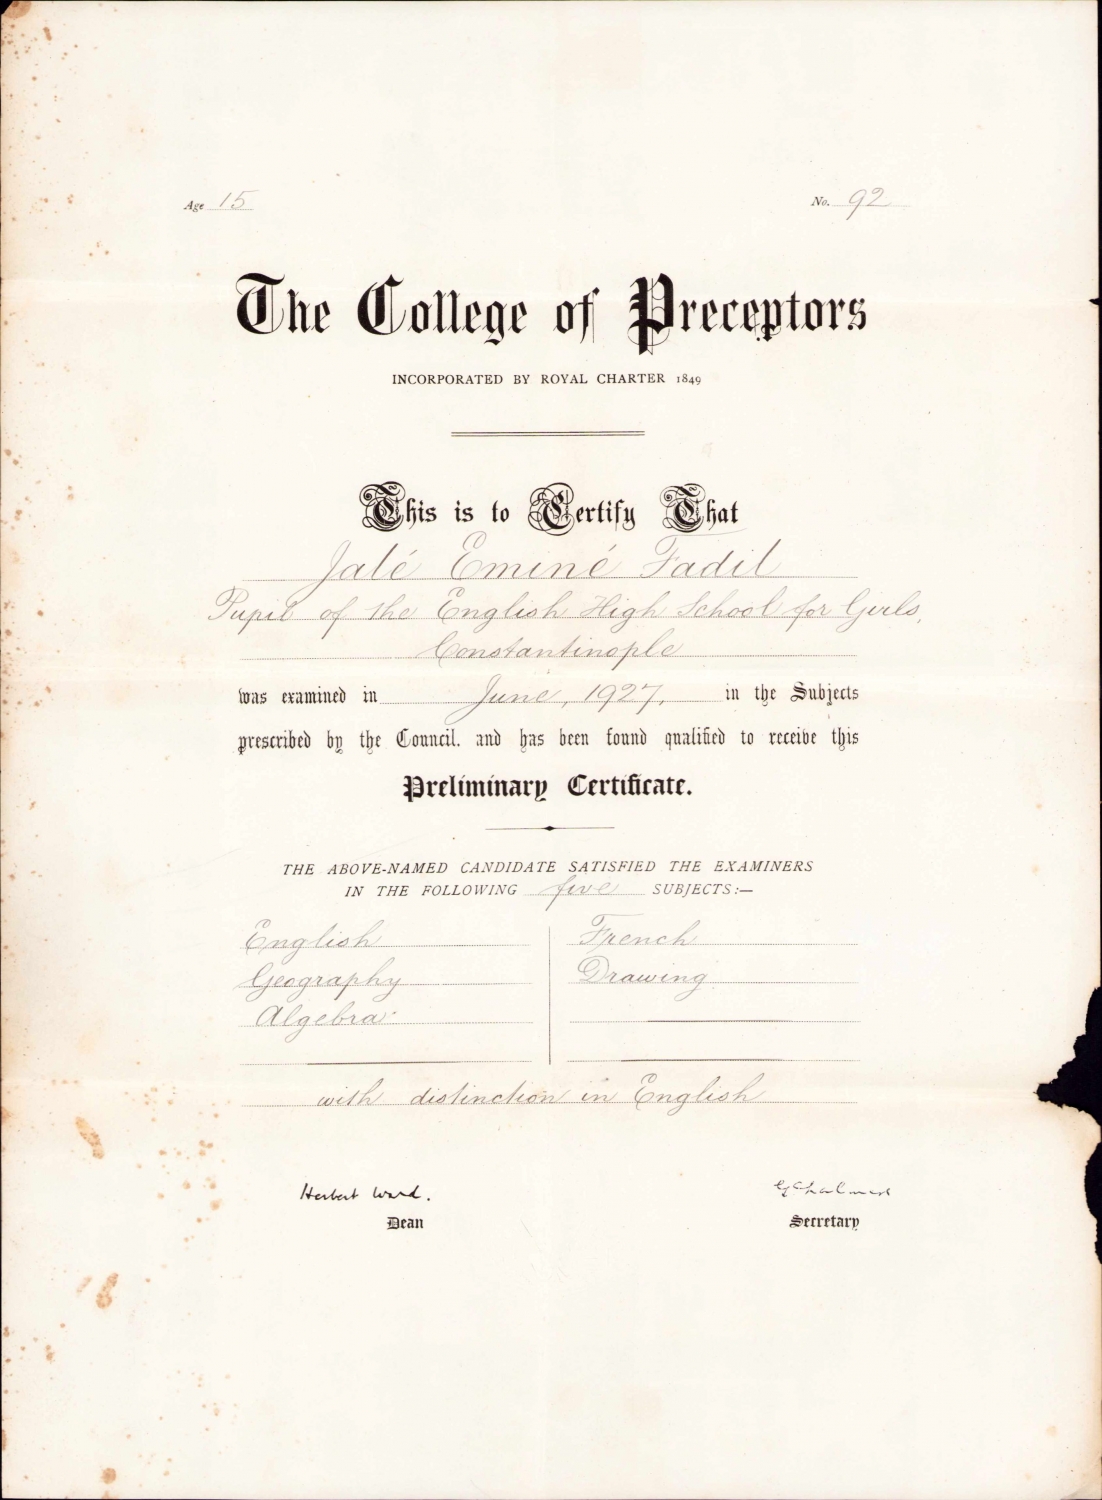 Age 15
No. 92
The College of Preceptors
INCORPORATED BY ROYAL CHARTER 1849
This is to Certify That
Jalé Eminé Fadil
Pupil of the English High School for Girls,
Constantinople
was examined in June, 1927, in the Subjects
prescribed by the Council. and has been found qualified to receive this
Preliminary Certificate.
THE ABOVE-NAMED CANDIDATE SATISFIED THE EXAMINERS
IN THE FOLLOWING five SUBJECTS:—
English
Geography
Algebra
French
Drawing
with distinction in English
Herbert Ward.
Dean
Secretary